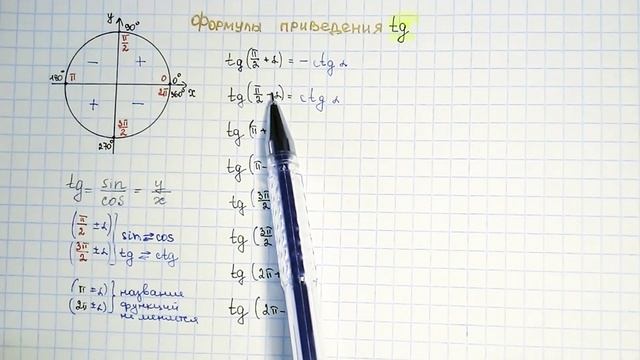 формулы приведения tg
y
90°
π/2
− +
180° π 0 0°
2π 360° x
+ −
3π/2
270°
tg = sin/cos = y/x
(π/2 ± α)
(3π/2 ± α)
sin ⇄ cos
tg ⇄ ctg
(π ± α)
(2π ± α)
название
функций
не меняется
tg (π/2 + α) = − ctg α
tg (π/2 − α) = ctg α
tg (π +
tg (π −
tg (3π/2
tg (3π/2
tg (2π +
tg (2π −